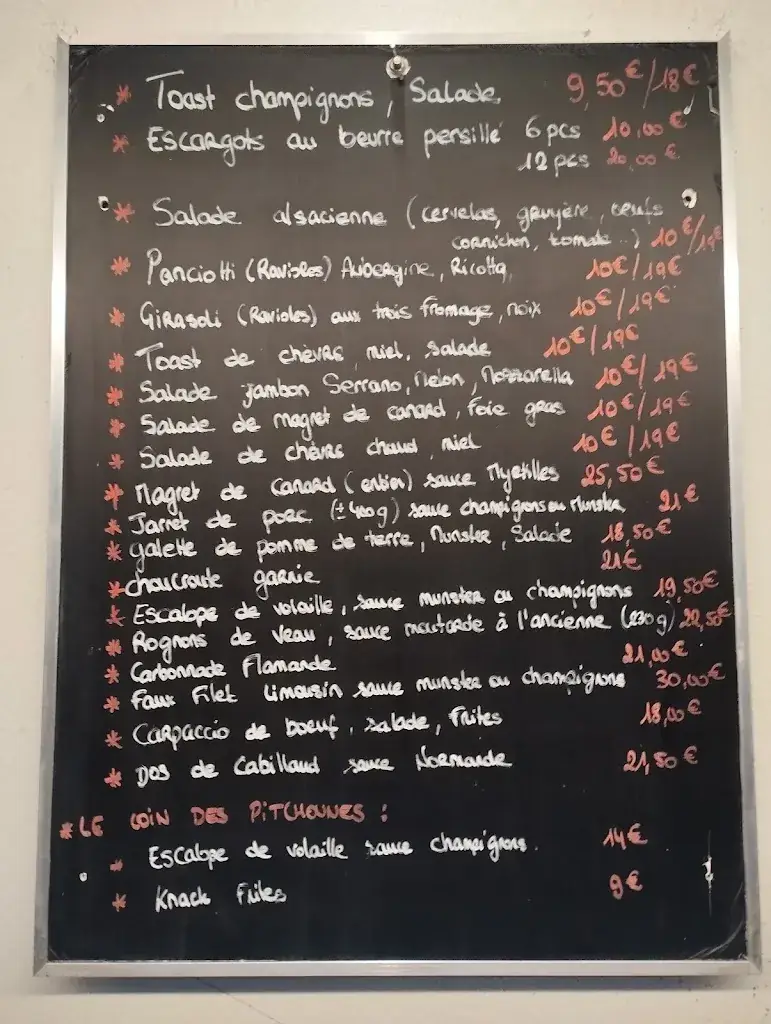 * Toast champignons, Salade 9,50€/18€
* Escargots au beurre persillé 6 pcs 10,00€
12 pcs 20,00€
* Salade alsacienne (cervelas, gruyère, oeufs
cornichon, tomate..) 10€/19€
* Panciotti (Ravioles) Aubergine, Ricotta, 10€/19€
* Girasoli (Ravioles) aux trois fromage, noix 10€/19€
* Toast de chèvre, miel, salade 10€/19€
* Salade jambon Serrano, Melon, Mozzarella 10€/19€
* Salade de magret de canard, foie gras 10€/19€
* Salade de chèvre chaud, miel 10€/19€
* Magret de canard (entier) sauce Myrtilles 25,50€
* Jarret de porc (± 400g) sauce champignons ou Munster 21€
* galette de pomme de terre, Munster, Salade 18,50€
* choucroute garnie 21€
* Escalope de volaille, sauce munster ou champignons 19,50€
* Rognons de veau, sauce moutarde à l'ancienne (230g) 22,50€
* Carbonnade Flamande 21,00€
* Faux Filet Limousin sauce munster ou champignons 30,00€
* Carpaccio de boeuf, salade, frites 18,00€
* Dos de Cabillaud sauce Normande 21,50€
* LE COIN DES PITCHOUNES :
* Escalope de volaille sauce champignons. 14€
* Knack Frites 9€